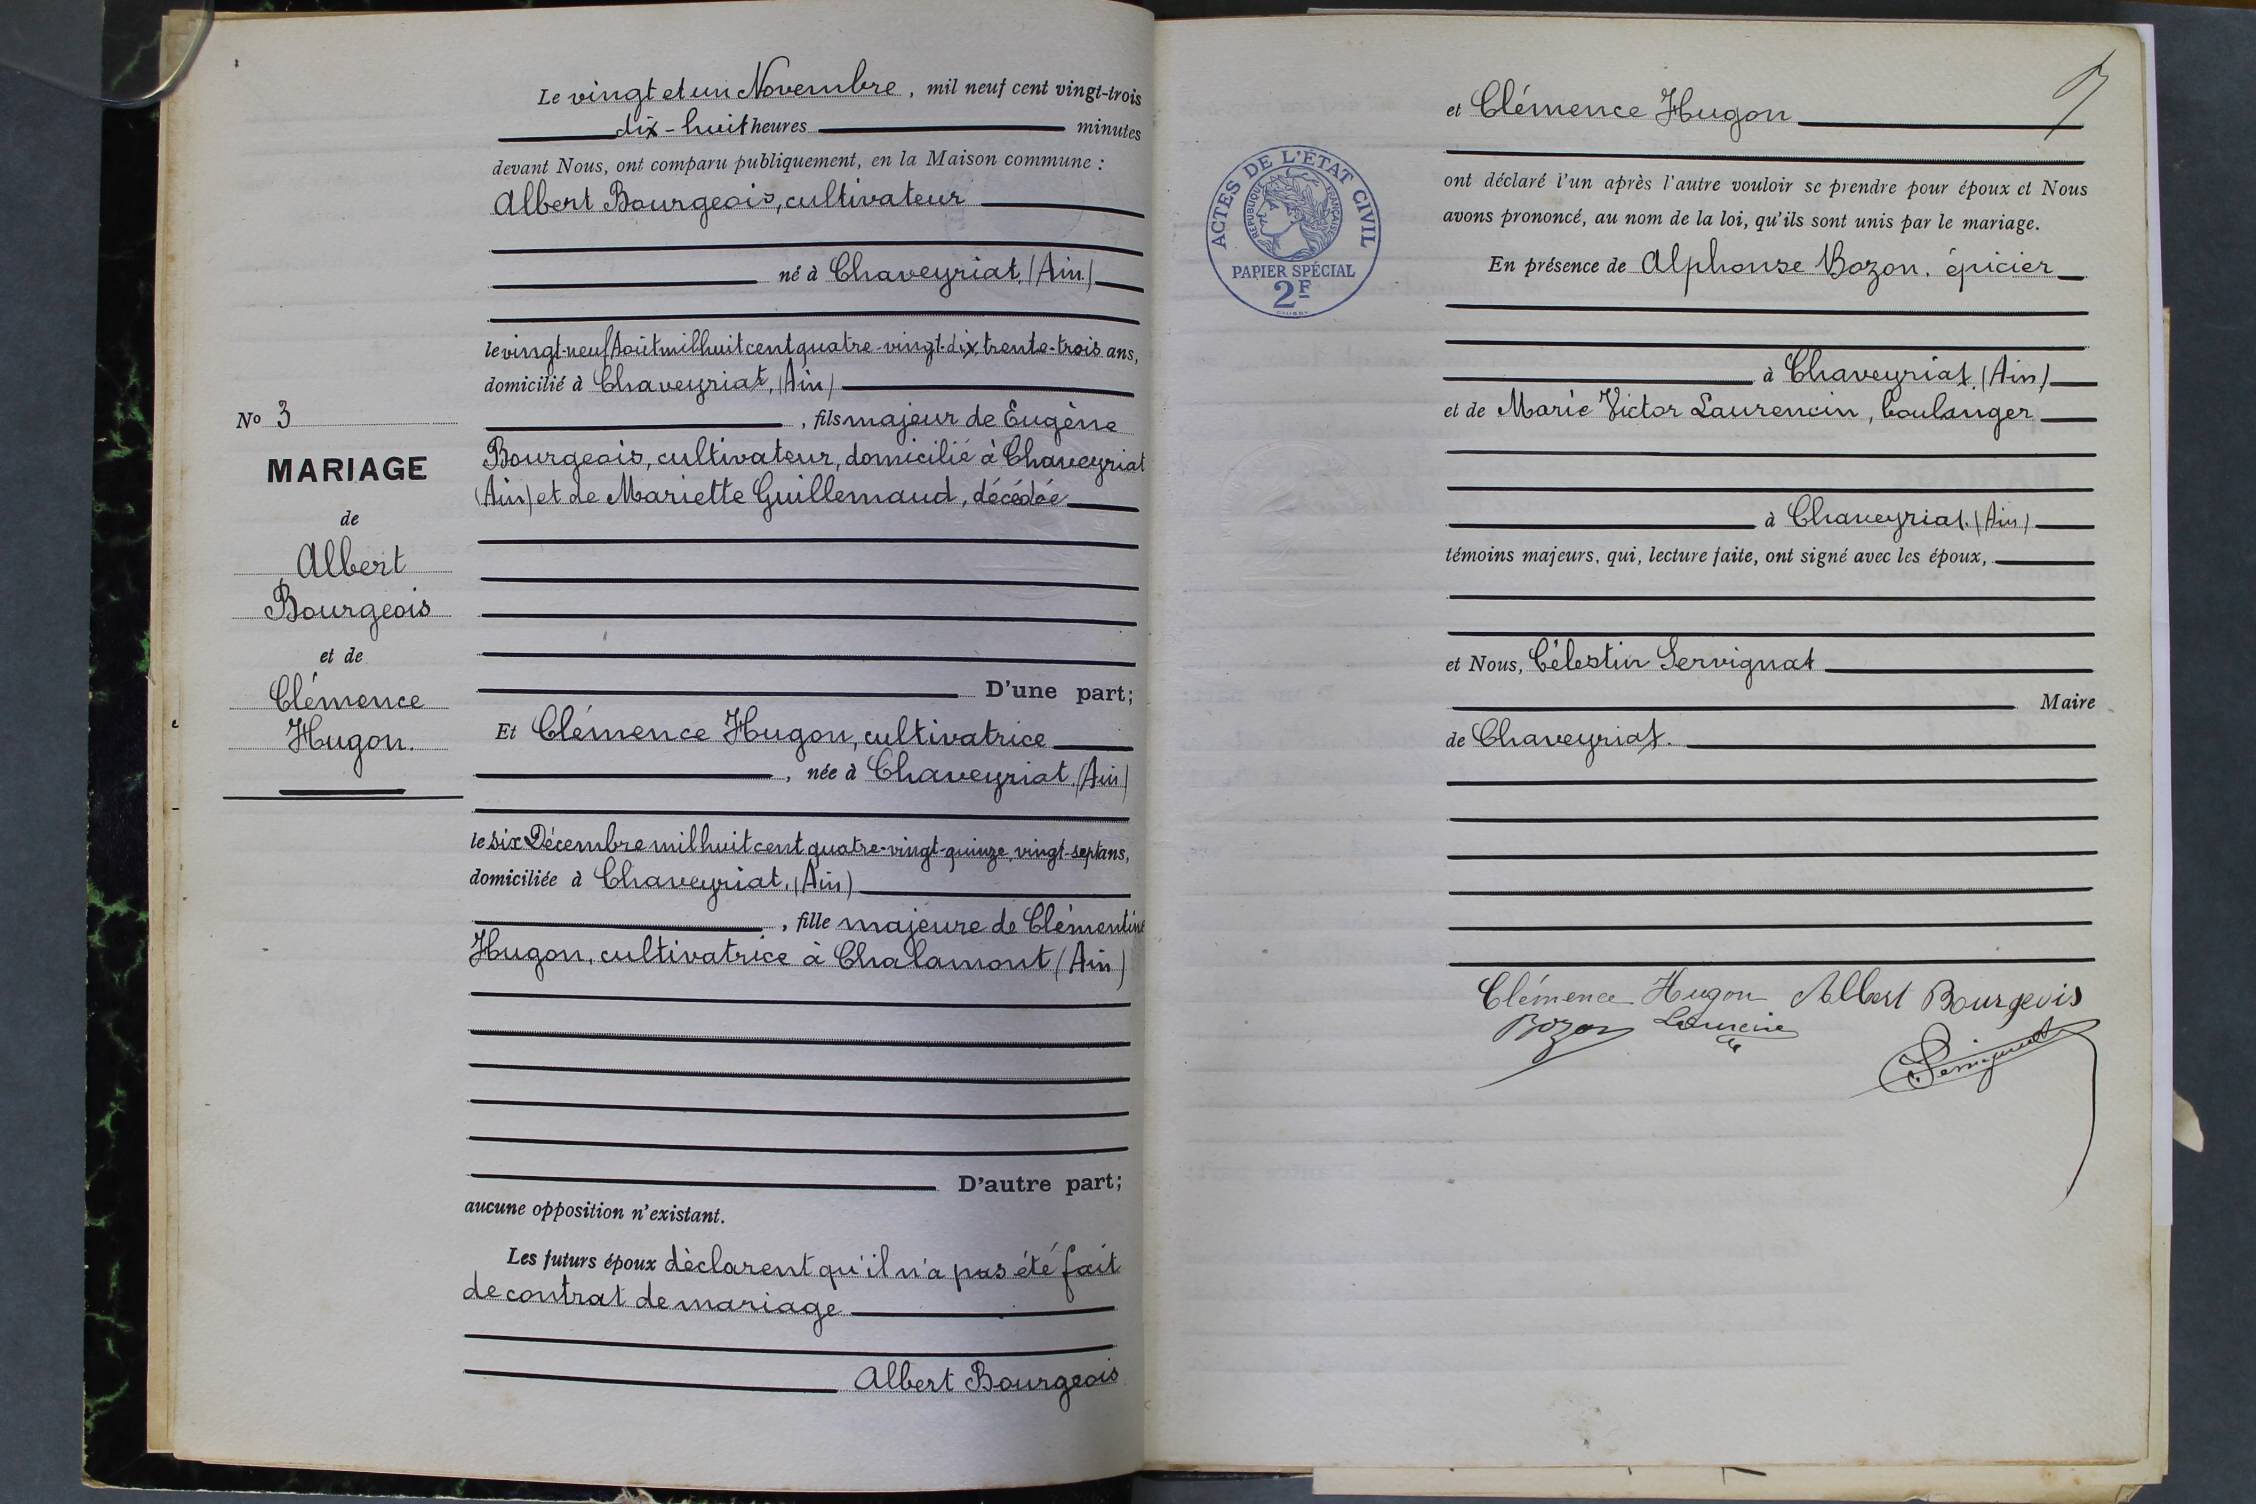 Le vingt et un Novembre, mil neuf cent vingt-trois
dix-huit heures minutes
devant Nous, ont comparu publiquement, en la Maison commune :
Albert Bourgeois, cultivateur
né à Chaveyriat, (Ain)
le vingt-neuf Août mil huit cent quatre-vingt-dix, trente-trois ans,
domicilié à Chaveyriat, (Ain)
, fils majeur de Eugène
Bourgeois, cultivateur, domicilié à Chaveyriat
(Ain) et de Mariette Guillemaud, décédée
D'une part;
Et Clémence Hugon, cultivatrice
, née à Chaveyriat, (Ain)
le six Décembre mil huit cent quatre-vingt-quinze, vingt-sept ans,
domiciliée à Chaveyriat, (Ain)
, fille majeure de Clémentine
Hugon, cultivatrice à Chalamont (Ain)
D'autre part;
aucune opposition n'existant.
Les futurs époux déclarent qu'il n'a pas été fait
de contrat de mariage
Albert Bourgeois
No 3
MARIAGE
de
Albert
Bourgeois
et de
Clémence
Hugon.
et Clémence Hugon
ont déclaré l'un après l'autre vouloir se prendre pour époux et Nous
avons prononcé, au nom de la loi, qu'ils sont unis par le mariage.
En présence de Alphonse Bozon, épicier
à Chaveyriat, (Ain)
et de Marie Victor Laurencin, boulanger
à Chaveyriat, (Ain)
témoins majeurs, qui, lecture faite, ont signé avec les époux,
et Nous, Célestin Servignat
Maire
de Chaveyriat.
Clémence Hugon Albert Bourgeois
Bozon
Servignat
ACTES DE L'ÉTAT CIVIL
RÉPUBLIQUE FRANÇAISE
PAPIER SPÉCIAL
2F